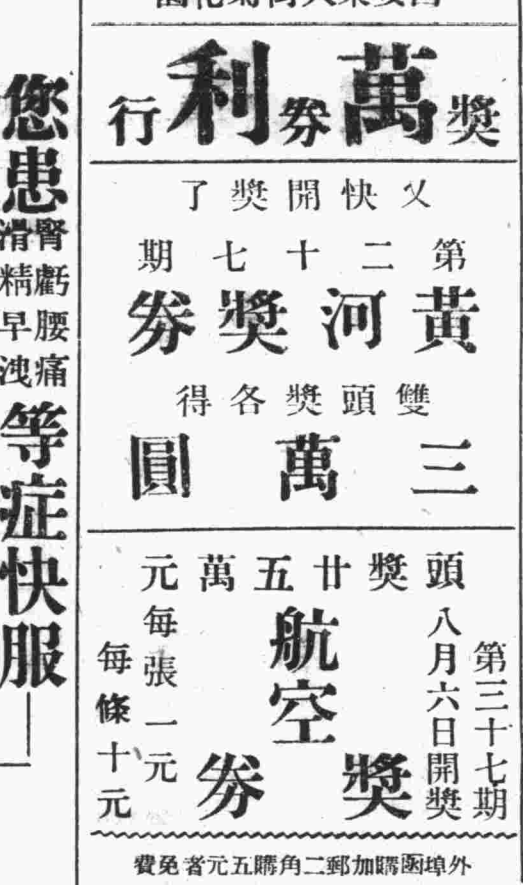 獎萬券利行
又快開獎了
第二十七期
黃河獎券
雙頭獎各得
三萬圓
頭獎廿五萬元
第三十七期
八月六日開獎
航空
獎券
每張一元
每條十元
外埠函購加郵二角購五元者免費
您患
腎虧腰痛
滑精早洩
等症快服—